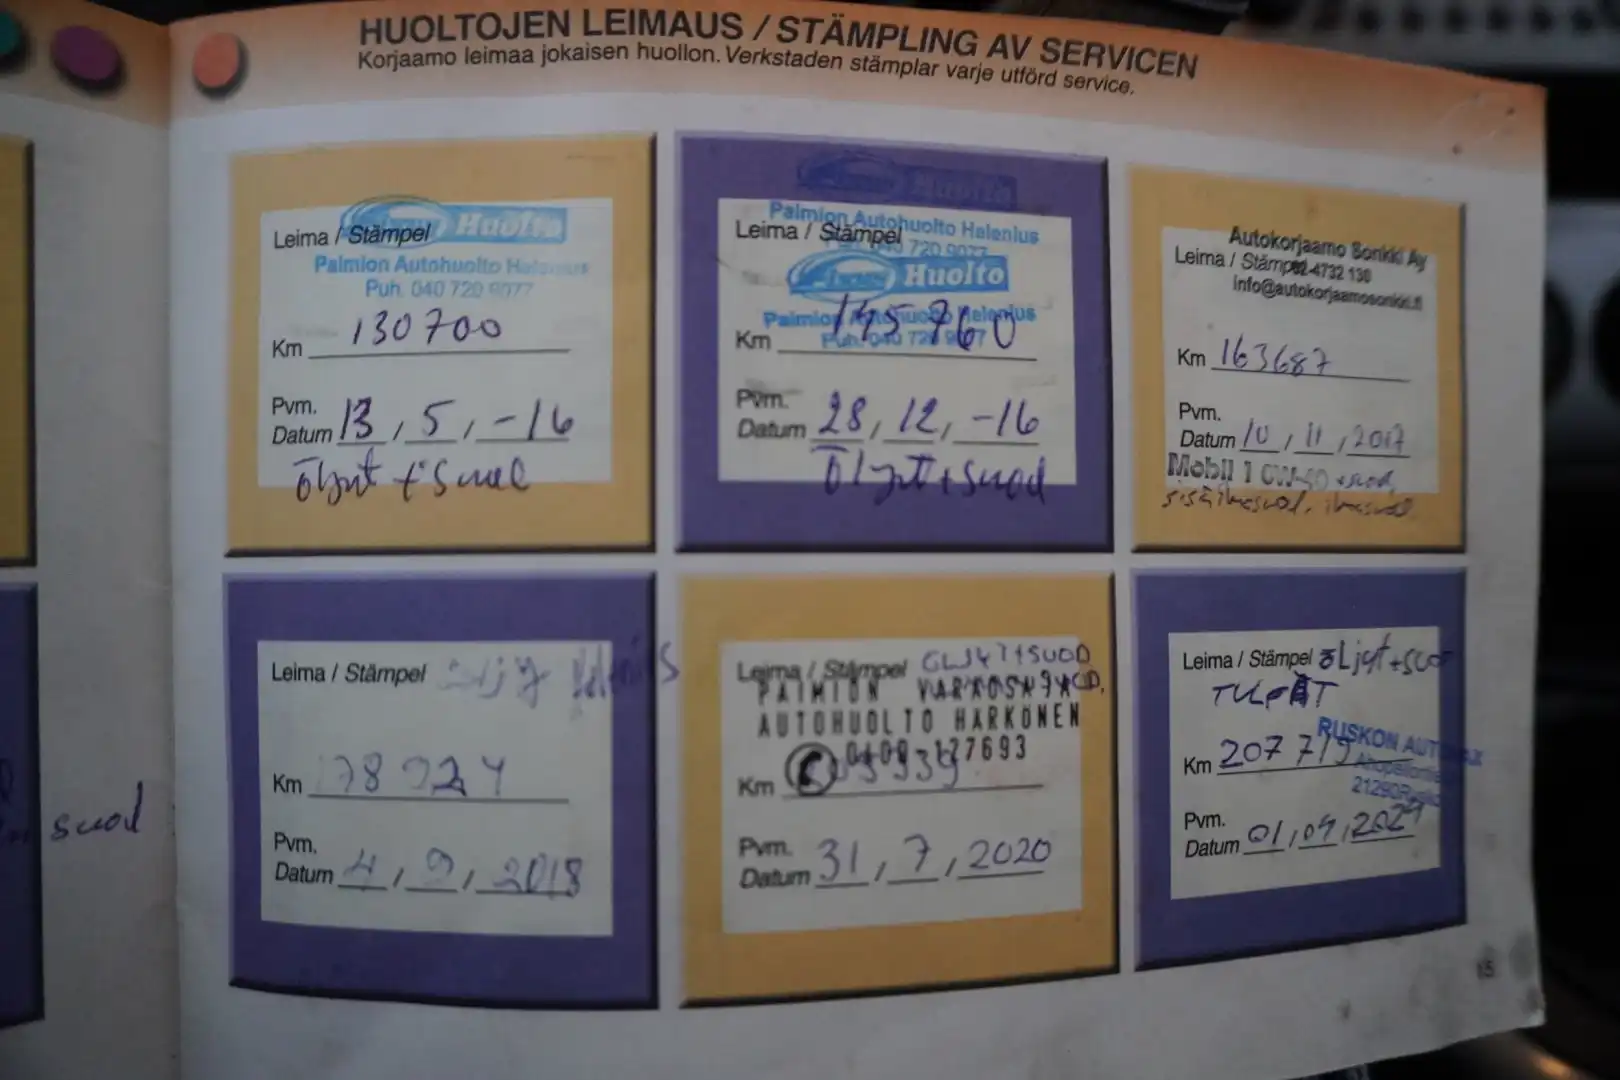 HUOLTOJEN LEIMAUS / STÄMPLING AV SERVICEN
Korjaamo leimaa jokaisen huollon. Verkstaden stämplar varje utförd service.
Huolto
Leima / Stämpel
Paimion Autohuolto Helenius
Puh. 040 720 9077
Km 130700
Pvm.
Datum 13, 5, -16
Öljyt + suod
Huolto
Paimion Autohuolto Helenius
Leima / Stämpel
040 720 9077
Huolto
Paimion Autohuolto Helenius
Puh. 040 720 9077
Km 145760
Pvm.
Datum 28, 12, -16
Öljyt + suod
Autokorjaamo Sonkki Ay
Leima / Stämpel
02-4732 130
info@autokorjaamosonkki.fi
Km 163687
Pvm.
Datum 10, 11, 2017
Mobil 1 0W-40 + suod,
sisäilmasuod. ilmasuod.
Leima / Stämpel
Km 178924
Pvm.
Datum 4, 9, 2018
Leima / Stämpel ÖLJYT+SUOD
PAIMION VARAOSA JA
AUTOHUOLTO HARKONEN
0400-127693
Km
Pvm.
Datum 31, 7, 2020
Leima / Stämpel öLjyt+suod
TULPAT
RUSKON
Km 207719
21290 Rusko
Pvm.
Datum 01, 09, 2021
suod
15